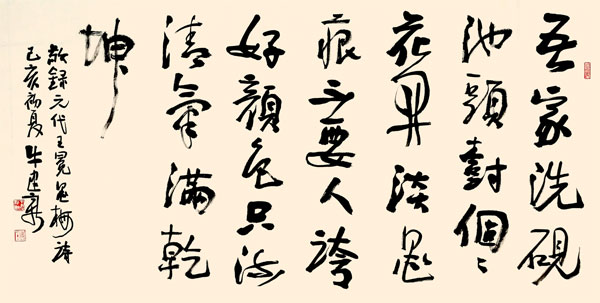 吾家洗硯
池頭樹個々
花開淡墨
痕不要人誇
好顏色只流
清氣滿乾
坤
敬錄元代王冕墨梅詩
己亥初夏牛建